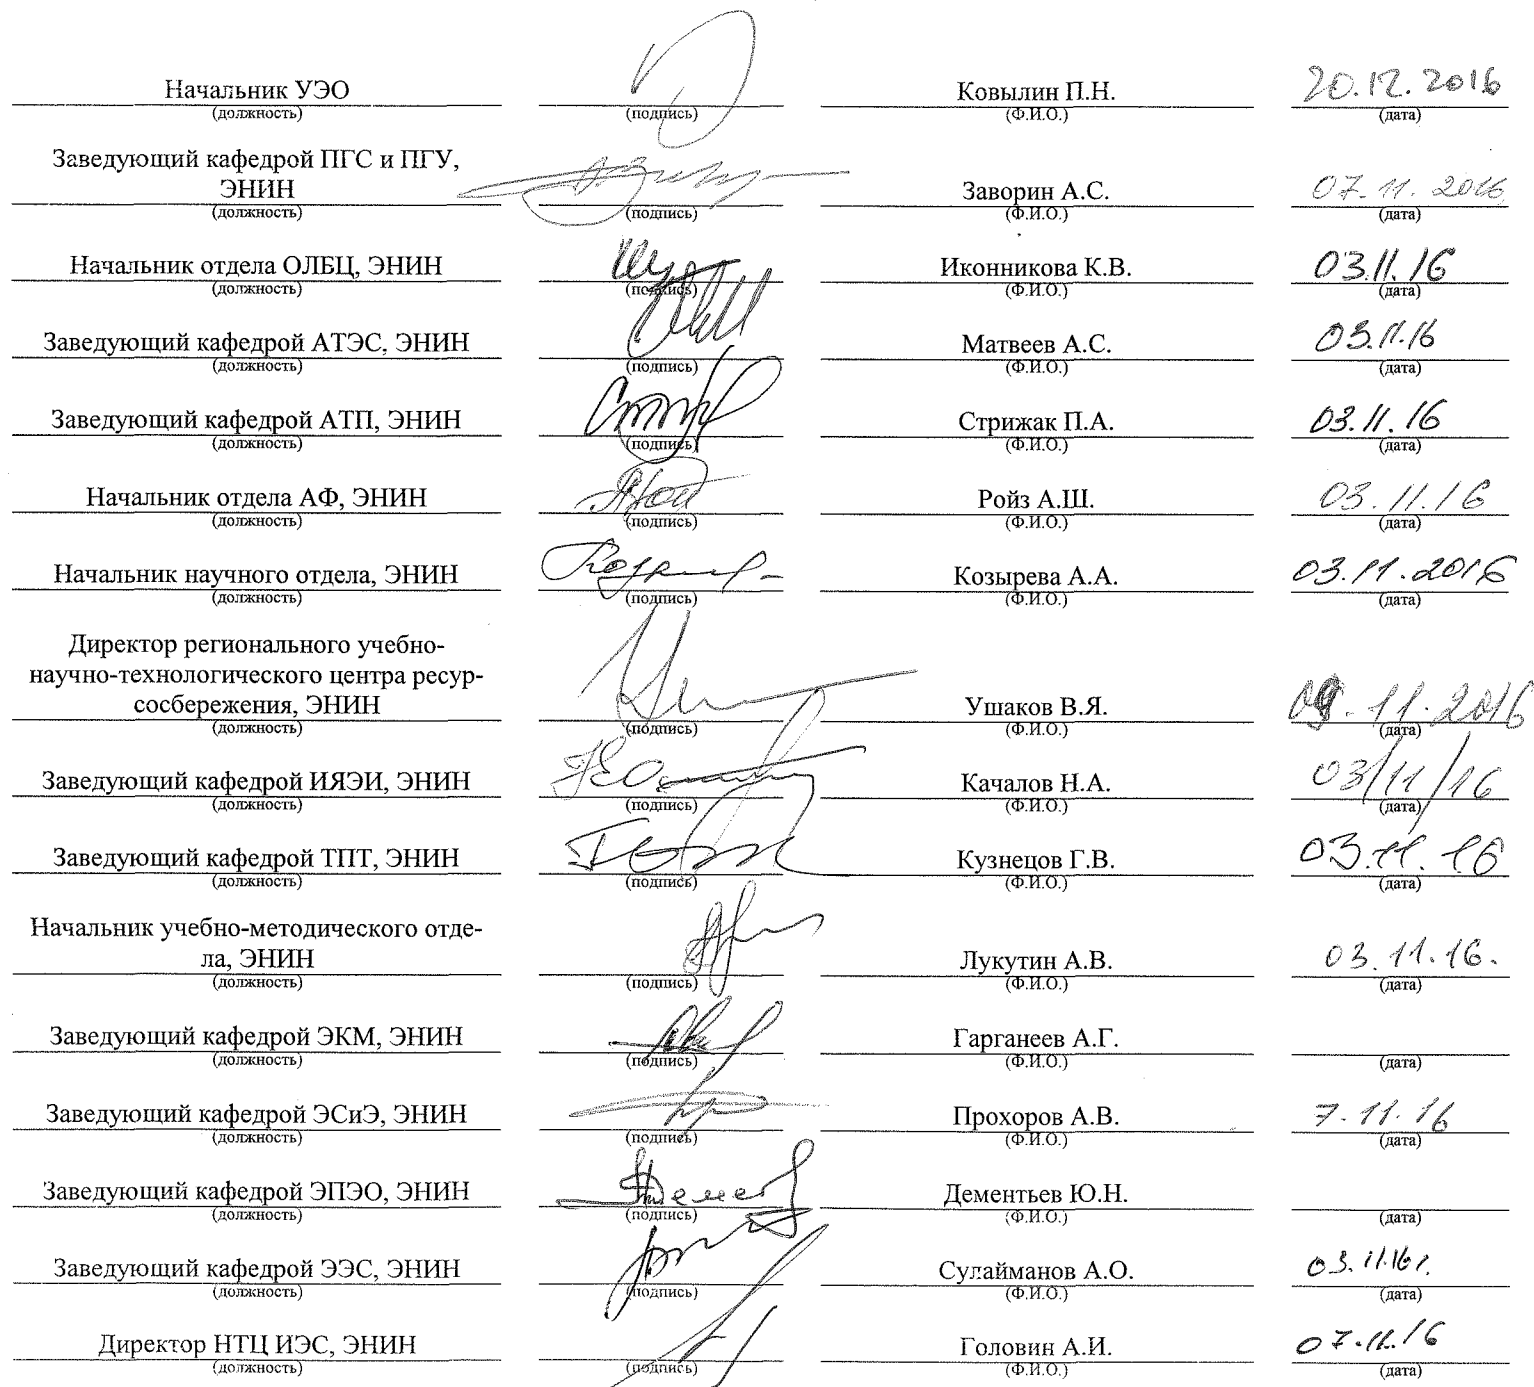 Начальник УЭО Ковылин П.Н. 20.12.2016
(должность) (подпись) (Ф.И.О.) (дата)
Заведующий кафедрой ПГС и ПГУ,
ЭНИН Заворин А.С. 07.11.2016
(должность) (подпись) (Ф.И.О.) (дата)
Начальник отдела ОЛБЦ, ЭНИН Иконникова К.В. 03.11.16
(должность) (подпись) (Ф.И.О.) (дата)
Заведующий кафедрой АТЭС, ЭНИН Матвеев А.С. 03.11.16
(должность) (подпись) (Ф.И.О.) (дата)
Заведующий кафедрой АТП, ЭНИН Стрижак П.А. 03.11.16
(должность) (подпись) (Ф.И.О.) (дата)
Начальник отдела АФ, ЭНИН Ройз А.Ш. 03.11.16
(должность) (подпись) (Ф.И.О.) (дата)
Начальник научного отдела, ЭНИН Козырева А.А. 03.11.2016
(должность) (подпись) (Ф.И.О.) (дата)
Директор регионального учебно-
научно-технологического центра ресур-
сосбережения, ЭНИН Ушаков В.Я.
(должность) (подпись) (Ф.И.О.) (дата)
Заведующий кафедрой ИЯЭИ, ЭНИН Качалов Н.А. 03/11/16
(должность) (подпись) (Ф.И.О.) (дата)
Заведующий кафедрой ТПТ, ЭНИН Кузнецов Г.В. 03.11.16
(должность) (подпись) (Ф.И.О.) (дата)
Начальник учебно-методического отде-
ла, ЭНИН Лукутин А.В. 03.11.16.
(должность) (подпись) (Ф.И.О.) (дата)
Заведующий кафедрой ЭКМ, ЭНИН Гарганеев А.Г.
(должность) (подпись) (Ф.И.О.) (дата)
Заведующий кафедрой ЭСиЭ, ЭНИН Прохоров А.В. 7.11.16
(должность) (подпись) (Ф.И.О.) (дата)
Заведующий кафедрой ЭПЭО, ЭНИН Дементьев Ю.Н.
(должность) (подпись) (Ф.И.О.) (дата)
Заведующий кафедрой ЭЭС, ЭНИН Сулайманов А.О. 03.11.16г.
(должность) (подпись) (Ф.И.О.) (дата)
Директор НТЦ ИЭС, ЭНИН Головин А.И. 07.11.16
(должность) (подпись) (Ф.И.О.) (дата)